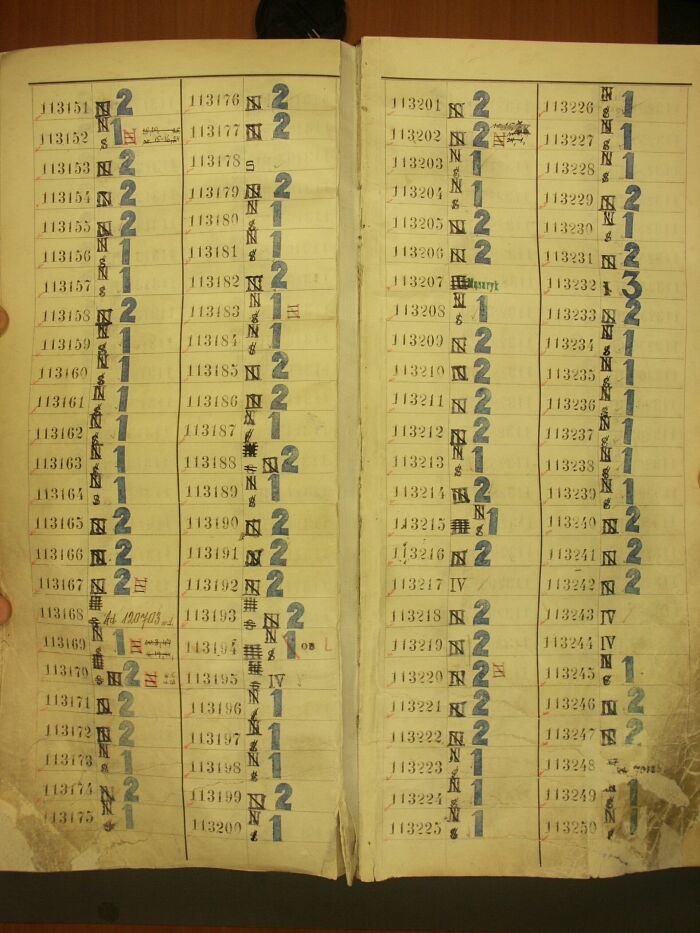 113151 N 2
113152 N S 1 III
113153 N 2
113154 N 2
113155 N 2
113156 N S 1
113157 N S 1
113158 N 2
113159 N S 1
113160 N S 1
113161 N S 1
113162 N S 1
113163 N S 1
113164 N S 1
113165 N 2
113166 N 2
113167 N 2 III
113168 Ad 120703
113169 N S 1 III
113170 N 2 III
113171 N 2
113172 N 2
113173 N S 1
113174 N 2
113175 N 1
113176 N 2
113177 N 2
113178 S
113179 N 2
113180 N S 1
113181 N S 1
113182 N 2
113183 N S 1 III
113184 N S 1
113185 N 2
113186 N 2
113187 N S 1
113188 N 2
113189 N S 1
113190 N 2
113191 N 2
113192 N 2
113193 N 2
113194 N S 1
113195 IV
113196 N S 1
113197 N S 1
113198 N S 1
113199 N 2
113200 N S 1
113201 N 2
113202 N 2 III
113203 N S 1
113204 N S 1
113205 N 2
113206 N 2
113207 Masaryk
113208 N S 1
113209 N 2
113210 N 2
113211 N 2
113212 N 2
113213 N S 1
113214 N 2
113215 N S 1
113216 N 2
113217 IV
113218 N 2
113219 N 2
113220 N 2 III
113221 N 2
113222 N 2
113223 N S 1
113224 N S 1
113225 N S 1
113226 N S 1
113227 N S 1
113228 N S 1
113229 N 2
113230 N S 1
113231 N 2
113232 3
113233 N 2
113234 N S 1
113235 N S 1
113236 N S 1
113237 N S 1
113238 N S 1
113239 N S 1
113240 N 2
113241 N 2
113242 N 2
113243 IV
113244 IV
113245 N S 1
113246 N 2
113247 N 2
113248
113249 S 1
113250 N S 1